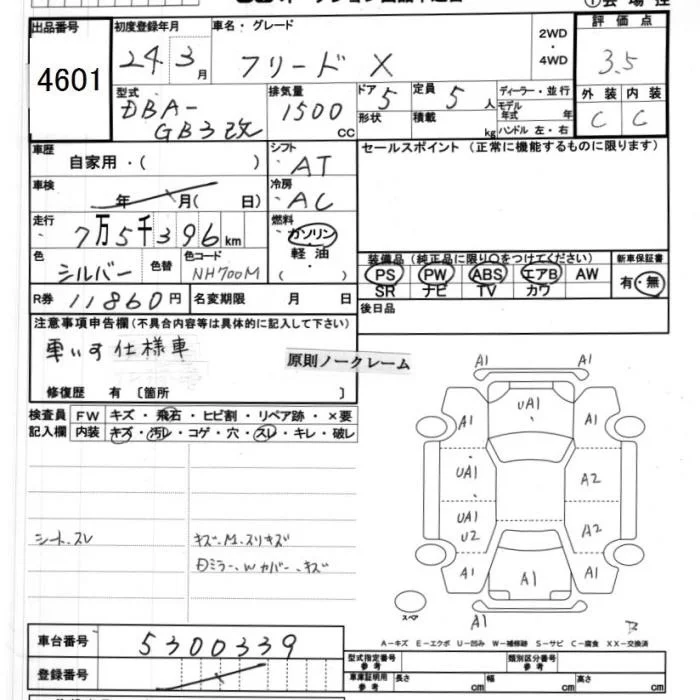 出品番号
4601
初度登録年月
24.3月
車名・グレード
フリード X
2WD
・
4WD
評価点
3.5
外装 内装
C C
型式
DBA-
GB3改
排気量
1500
CC
ドア
5
定員
5人
形状
積載
kg
ディーラー・並行
モデル
年式 年
ハンドル 左・右
車歴
自家用・( )
シフト
AT
車検
年 月( 日)
冷房
AC
走行
7万5千396km
燃料
ガソリン
軽油
( )
色
シルバー
色替
色コード
NH700M
R券 11860円
名変期限 月 日
セールスポイント(正常に機能するものに限ります)
装備品(純正品に限り○をつけてください)
PS PW ABS エアB AW
SR ナビ TV カワ
新車保証書
有・無
後日品
注意事項申告欄(不具合内容等は具体的に記入して下さい)
車いす仕様車
修復歴 有 〔箇所 〕
原則ノークレーム
検査員
記入欄
FW キズ・飛石・ヒビ割・リペア跡・×要
内装 キズ・汚レ・コゲ・穴・スレ・キレ・破レ
シート、スレ
キズ、M、スリキズ
Dミラー、Wカバー、キズ
A1 A1
A1 UA1 A1
UA1 A2
UA1
U2 A2
A1 A1 A1
A1
スペア
A-キズ E-エクボ U-凹み W-補修跡 S-サビ C-腐食 XX-交換済
車台番号
5300339
登録番号
型式指定番号
参考
類別区分番号
参考
車庫証明用
参考
長さ cm 幅 cm 高さ cm